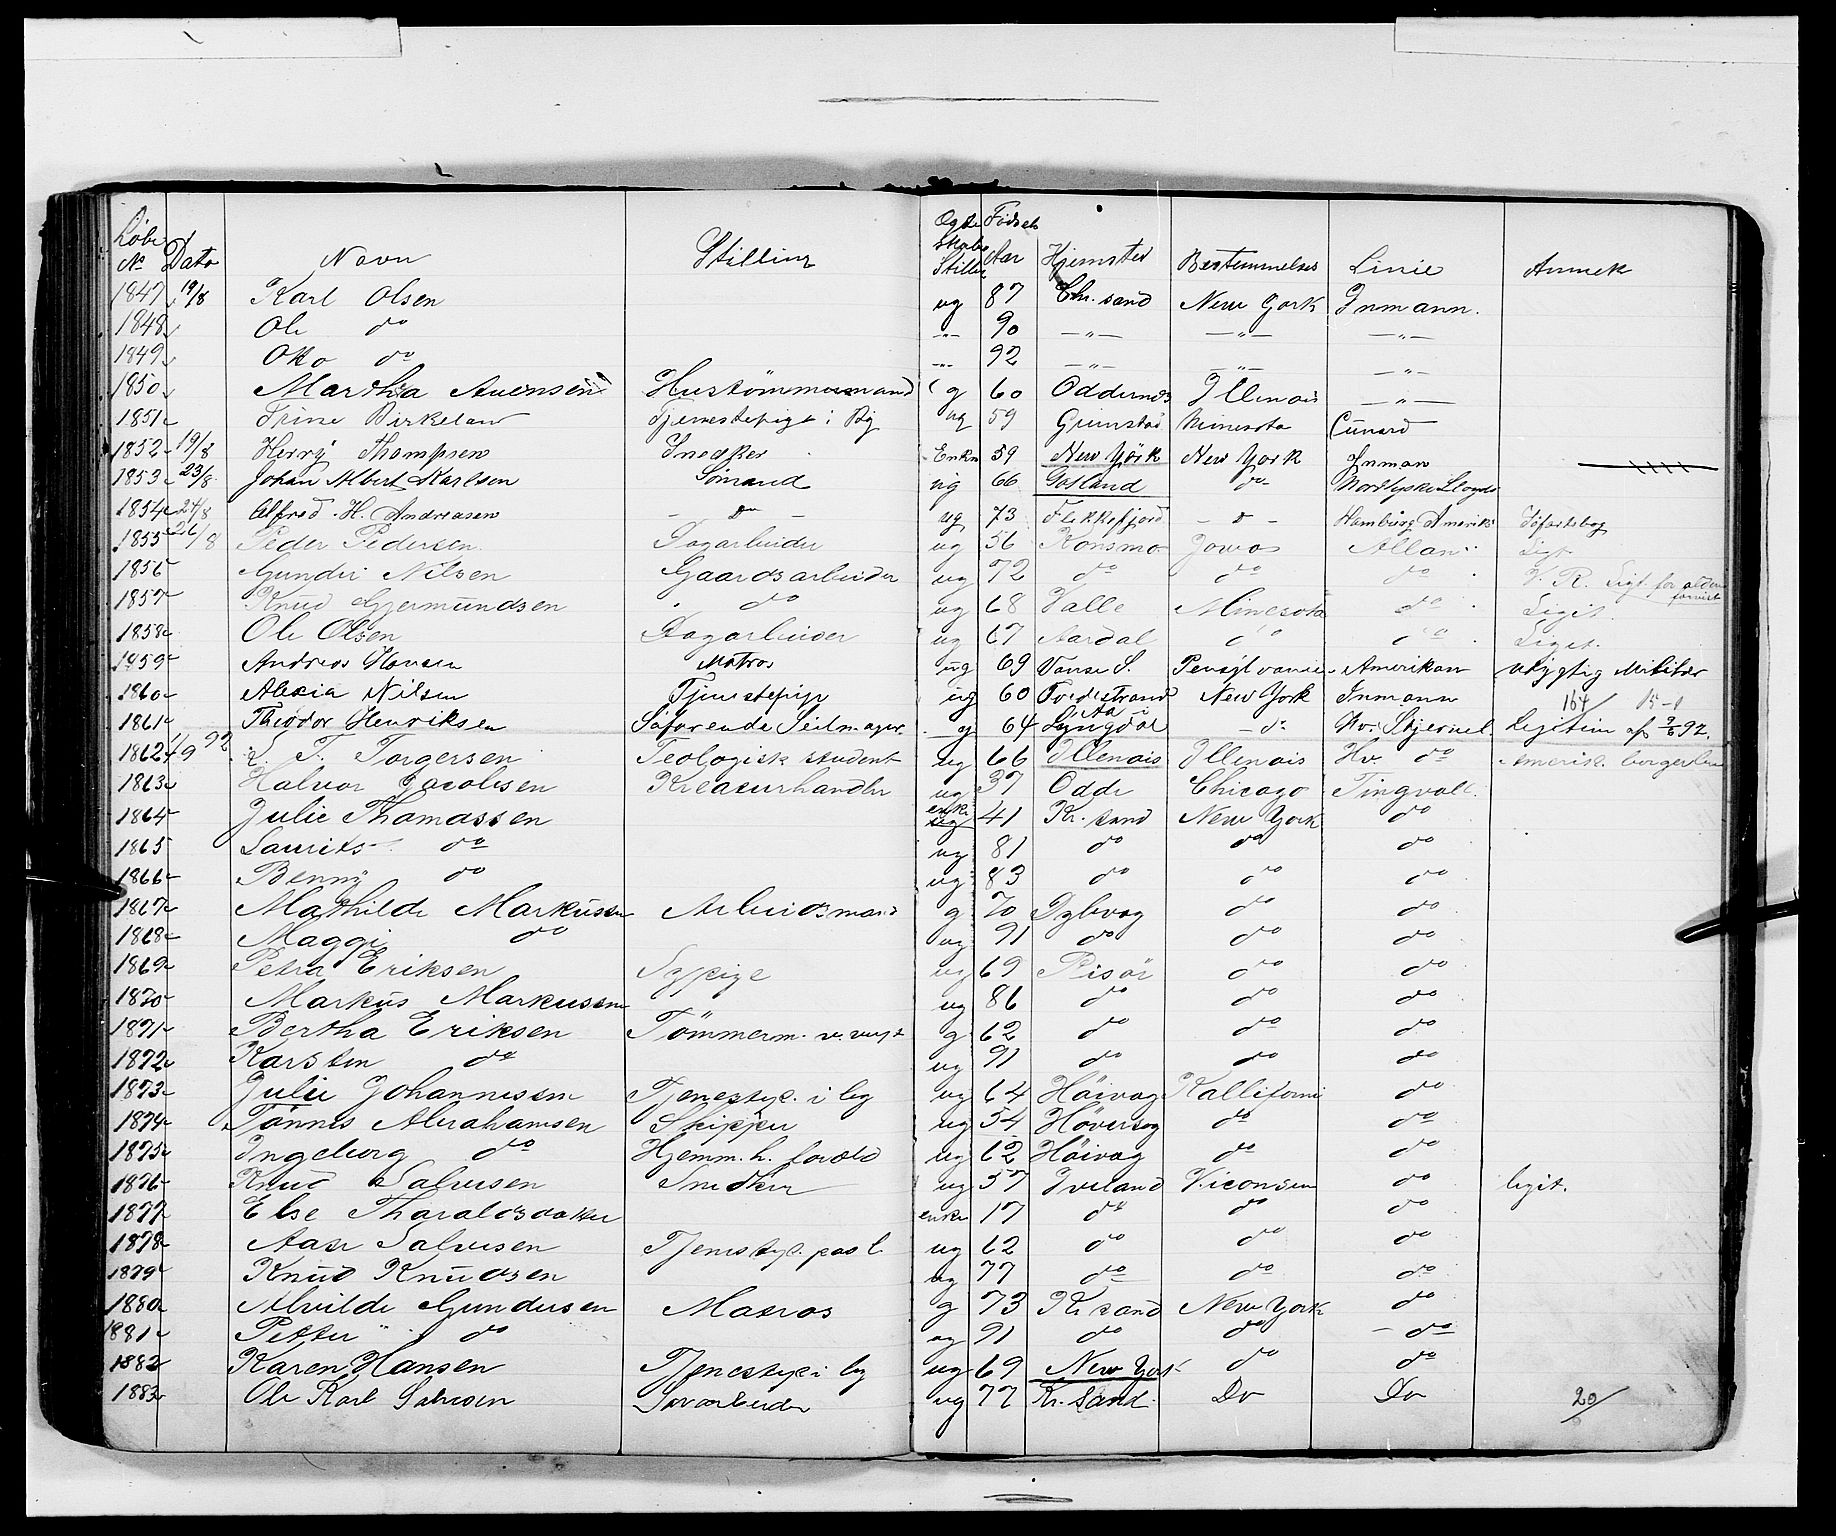 Løbe No Dato Navn Stilling Ogte skabs Stilli Fødsels Aar Hjemsted Bestemmelses Linie Anmek
1847 19/8 Karl Olsen ug 87 Chr. sand New York Inmann.
1848 Ole do -"- 90 -"- -"- -"-
1849 do -"- 92 -"- -"- -"-
1850 Martha Auensen g 60 Oddernes Illenois -"-
1851 Trine Birkeland Tjenestepige i By ug 59 Grimstad Minesota Cunard
1852 19/8 Henry Thompsen Snedker Enkm 59 New York New York Inman
1853 23/8 Johan Albert Karlsen Sömand ug 66 Gotland do Nordtyske Lloyds
1854 24/8 Alfred H. Andreasen - do - ug 73 Flekkefjord - d - Hamburg Amerik Söfartsbog
1855 26/8 Peder Pedersen Dagarbeider ug 56 Konsmo Jowa Allan Ligt
1856 Gunder Nilsen Gaardsarbeider ug 72 do do do V. R. Ligt for alder
1857 Knud Gjermundsen do ug 68 Valle Minesota do Ligit.
1858 Ole Olsen Dagarbeider ug 67 Aardal do do Ligit.
1859 Andreas Hansen Matros ug 69 Vanse S. Pensylvanie Amerikan ubygtig Militær
1860 Alexia Nilsen Tjenestepige ug 60 Tvedestrand New York Inmann 164/ 15-8
1861 Theodor Henriksen Söfarende Seilmager g 64 Lyngdal do Hv. Stjernel Legitim af 9/6 92.
1862 1/9 92 L. T. Torgersen Teologisk student ug 66 Illenois Illenois Hv. do Amerik. borgerbre
1863 Halvor Jacobsen Kreaturhandler ug 37 Odde Chicago Tingvall.
1864 Julie Thomassen enke ug 41 Kr. sand New York do
1865 Laurits do ug 81 do do do
1866 Benny do ug 83 do do do
1867 Mathilde Markussen Arbeidsmand g 70 Dybvag do do
1868 Maggi do ug 91 do do do
1869 Petra Eriksen Sypige ug 69 Risör do do
1870 Markus Markussen ug 86 do do do
1871 Bertha Eriksen Tömmerm. v. verft g 62 do do do
1872 Karsten do ug 91 do do do
1873 Julie Johannessen Tjenestyp. i by ug 64 Höivag Kalliforni do
1874 Tönnes Abrahamsen Skipper ug 54 Hövåg do do
1875 Ingeborg do Hjemm. h. foræld ug 62 Höivag do do
1876 Knud Salvesen Snedker ug 57 Iveland Viconsin do legit.
1877 Else Tharaldsdatter enke 17 do do do
1878 Aase Salvesen Tjenestyp. paa l. ug 62 do do do
1879 Knud Knudsen ug 77 do do do
1880 Alvilde Gundersen Matros g 73 Kr sand New York do
1881 Petter " do ug 91 do do - do
1882 Karen Hansen Tjenestyp i by ug 69 New York do do
1883 Ole Karl Salvesen ug 77 Kr. sand. Do Do 20/